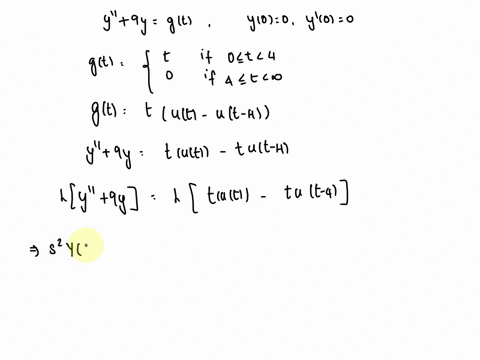 y'' + 9y = g(t) , y(0)=0, y'(0)=0
g(t) = { t if 0≤t<4
0 if 4≤t<∞
g(t) = t (u(t) - u(t-4))
y'' + 9y = t(u(t)) - t u(t-4)
L[y'' + 9y] = L[ t(u(t)) - t u(t-4) ]
⇒ s² Y(